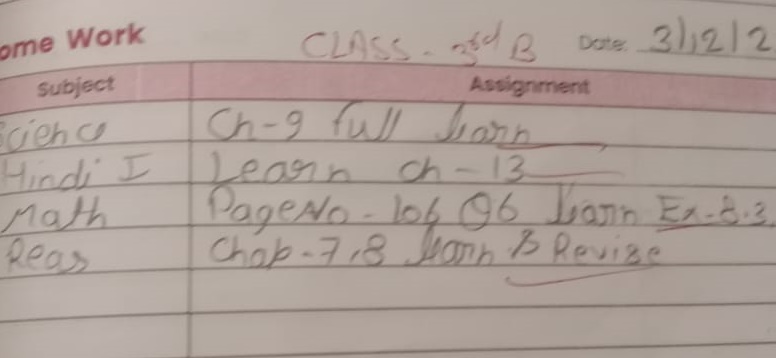 ome Work CLASS - 3rd B Date: 3/12/2
Subject Assignment
cience Ch-9 full learn
Hindi I Learn Ch-13
Math Page No - 106 Q6 learn Ex-8.3
Reas Chap-7,8 learn & Revise